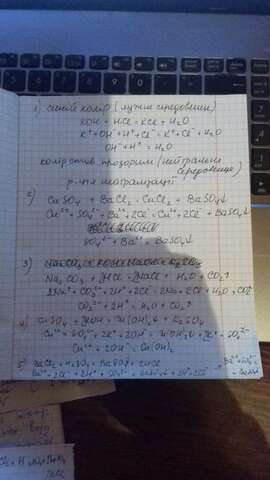 1) синій колір (лужне середовище)
KOH + HCl = KCl + H₂O
K⁺ + OH⁻ + H⁺ + Cl⁻ = K⁺ + Cl⁻ + H₂O
OH⁻ + H⁺ = H₂O
колір став прозорим (нейтральне
середовище)
р-ція нейтралізації
2) CuSO₄ + BaCl₂ = CuCl₂ + BaSO₄↓
Cu²⁺ + SO₄²⁻ + Ba²⁺ + 2Cl⁻ = Cu²⁺ + 2Cl⁻ + BaSO₄↓
SO₄²⁻ + Ba²⁺ = BaSO₄↓
3)
Na₂CO₃ + 2HCl = 2NaCl + H₂O + CO₂↑
2Na⁺ + CO₃²⁻ + 2H⁺ + 2Cl⁻ = 2Na + 2Cl + H₂O + CO₂↑
CO₃²⁻ + 2H⁺ = H₂O + CO₂↑
4) CuSO₄ + 2KOH = Cu(OH)₂↓ + K₂SO₄
Cu²⁺ + SO₄²⁻ + 2K⁺ + 2OH⁻ = Cu(OH)₂↓ + 2K⁺ + SO₄²⁻
Cu²⁺ + 2OH⁻ = Cu(OH)₂
5) BaCl₂ + H₂SO₄ = BaSO₄↓ + 2HCl
Ba²⁺ + 2Cl⁻ + 2H⁺ + SO₄²⁻ = BaSO₄↓ + 2H⁺ + 2Cl⁻
Ba²⁺ + SO₄²⁻ =
= BaSO₄↓